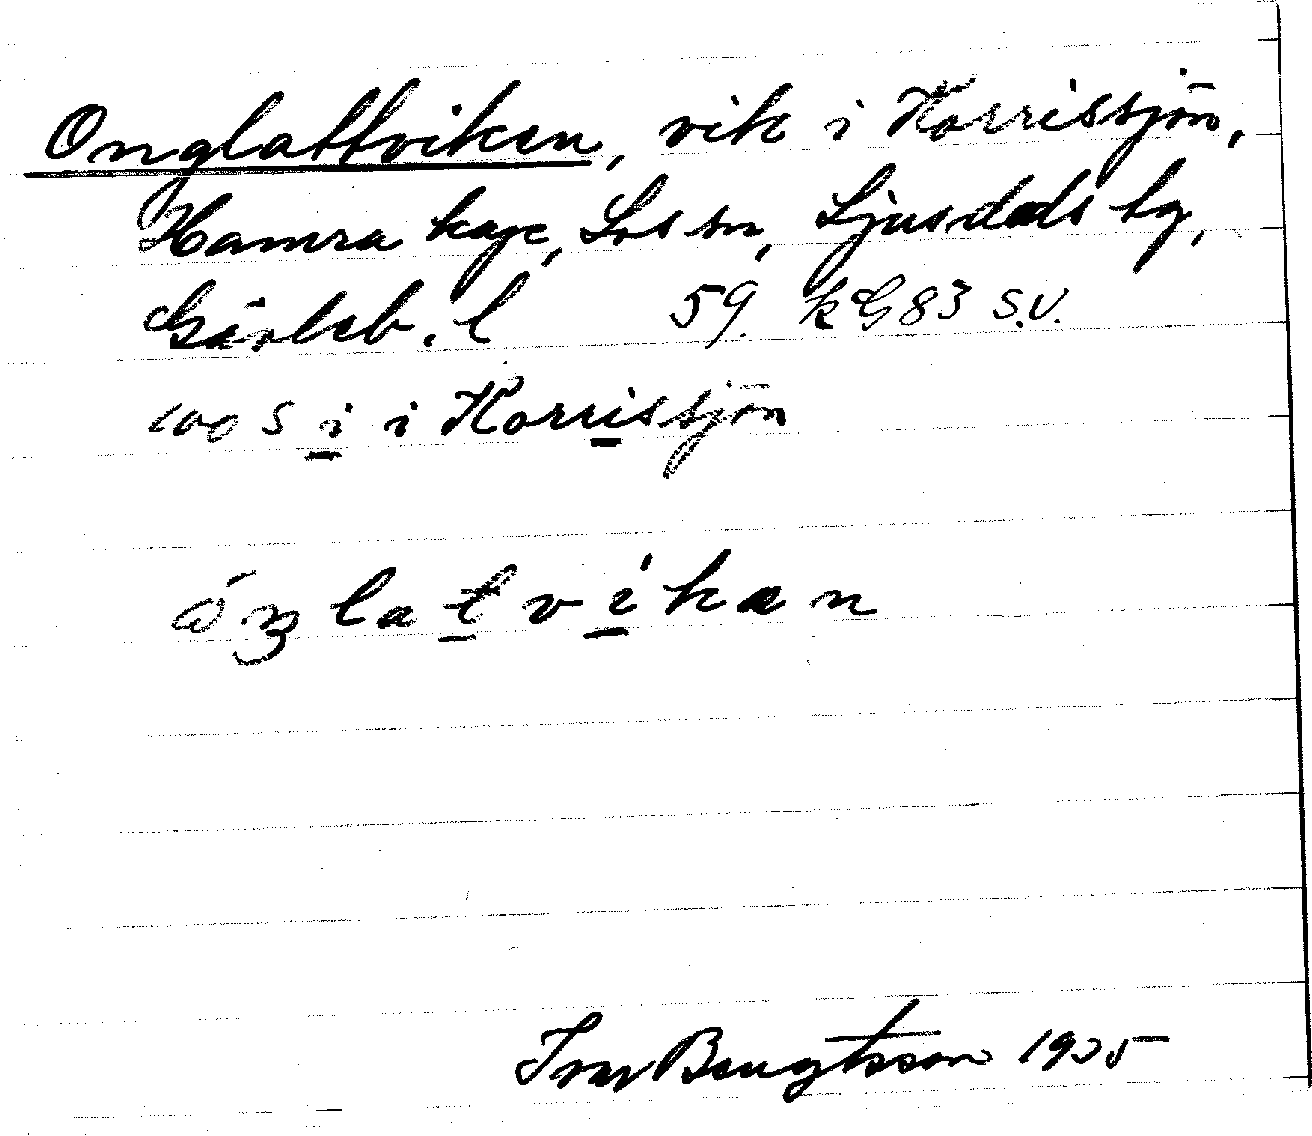 Onglattviken, vik i Korrissjön,
Hamra kapc, Los sn, Ljusdals tg,
Gävleb. l 59. kG83 S.V.
100 S i i Korrissjön
latvikan
Ivar Bengtsson 1935